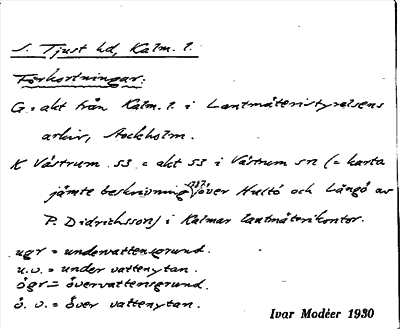 S. Tjust hd, Kalm. l.
Förkortningar:
G = akt från Kalm. l. i Lantmäteristyrelsens
arkiv, Stockholm.
K Västrum 53 = akt 53 i Västrum sn (= karta
jämte beskrivning över Hultö och Långö av
P. Didrichsson) i Kalmar lantmäterikontor.
ugr = undervattensgrund.
u.v. = under vattenytan.
ögr = övervattensgrund.
ö. v. = över vattenytan.
Ivar Modéer 1930